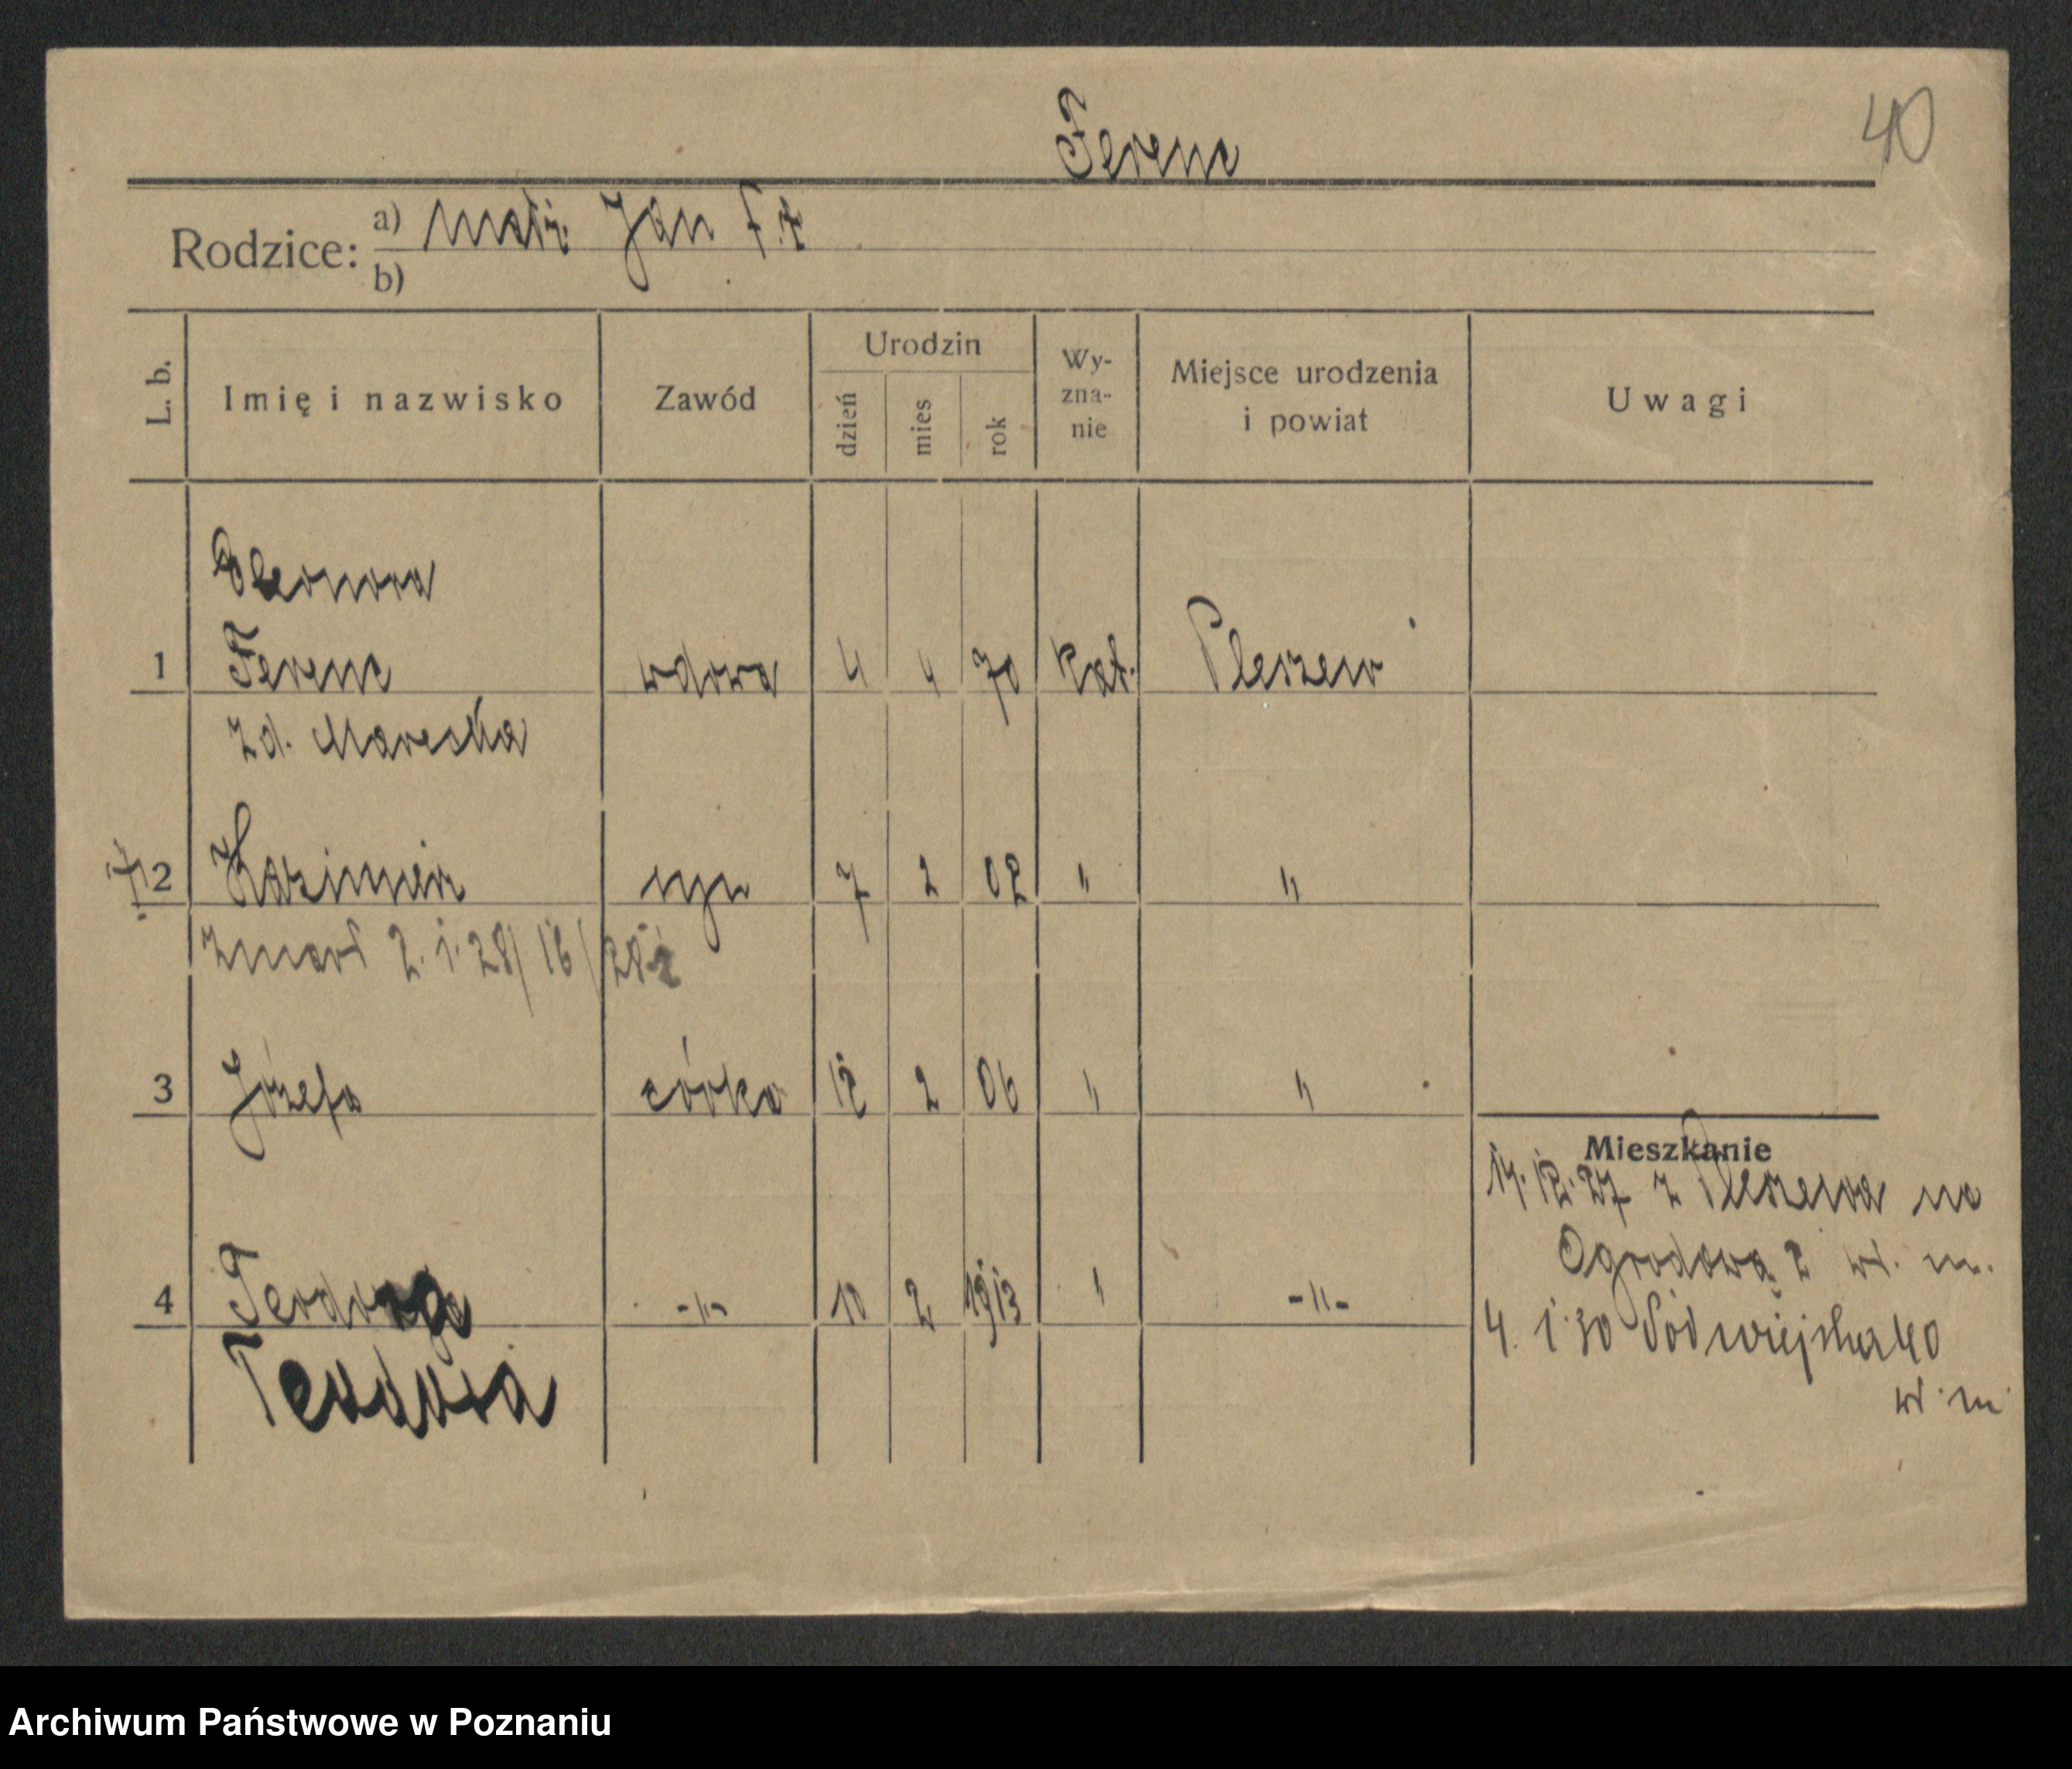 Ferenc
40
Rodzice: a) małż. Jan F.
b)
L. b.
Imię i nazwisko
Zawód
Urodzin
dzień
mies
rok
Wy-
zna-
nie
Miejsce urodzenia
i powiat
Uwagi
Eleonora
1 Ferenc wdowa 4 4 70 kat. Pleszew
zd. Mareska
2 Kazimierz syn 7 2 02 " "
zmarł 2.1.28/16/28
3 Józefa córka 12 2 06 " "
Mieszkanie
14.12.27 z Pleszewa na
Ogrodową 2 w. m.
4 -"- 10 2 1913 " -"-
4. 1.30 Podwiejska 40
w. m.
Teodozja
Archiwum Państwowe w Poznaniu